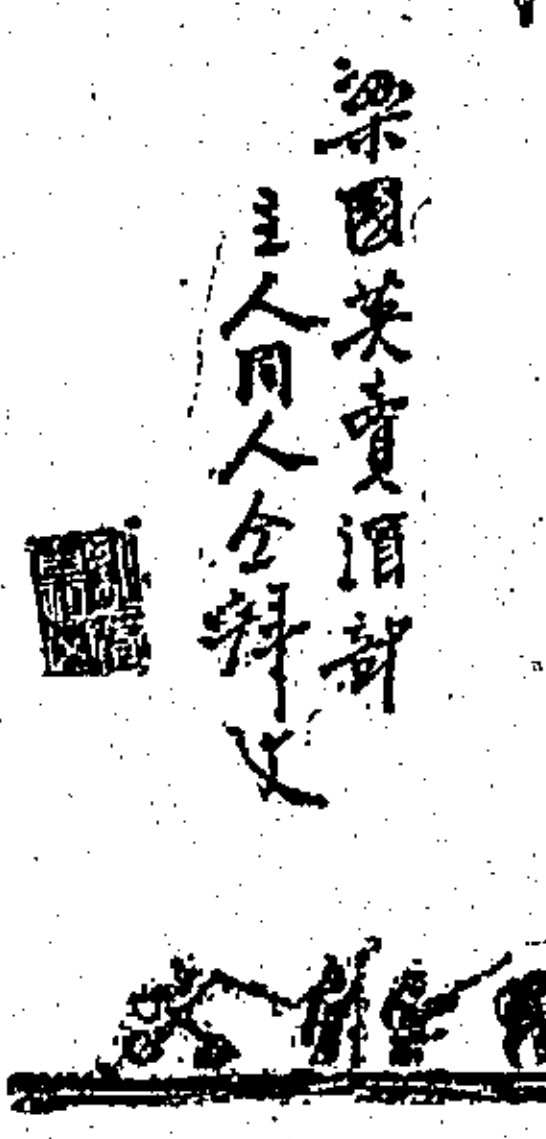 梁國英賣酒部
主人同人仝拜